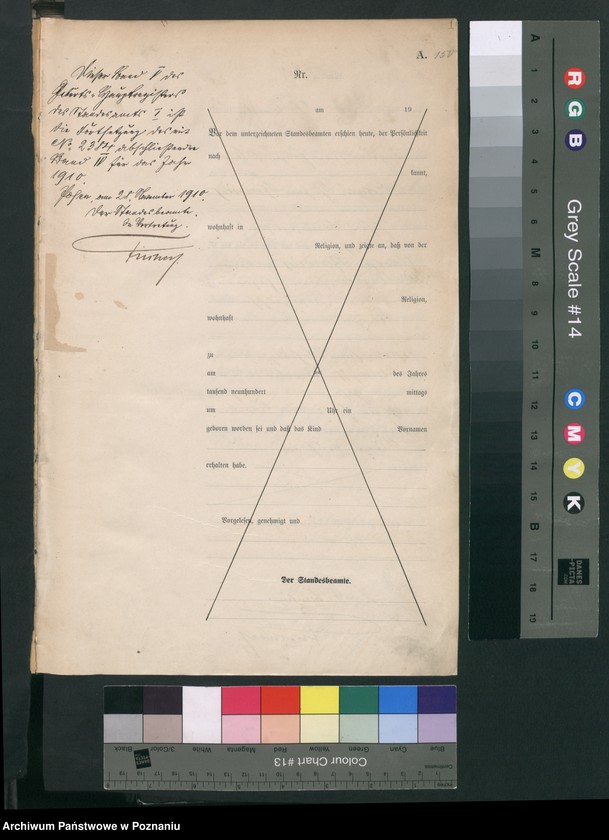 A. 150
Nr.
Dieser Band V des
Geburts-Hauptregisters
des Standesamts I ist
die Fortsetzung des mit
No. 2384 abschließenden
Band IV für das Jahr
1910.
Posen, am 28. November 1910.
Der Standesbeamte.
In Vertretung.
am 19
Vor dem unterzeichneten Standesbeamten erschien heute, der Persönlichkeit
nach
kannt,
wohnhaft in
Religion, und zeigte an, daß von der
Religion,
wohnhaft
zu
am des Jahres
tausend neunhundert mittags
um Uhr ein
geboren worden sei und daß das Kind Vornamen
erhalten habe.
Vorgelesen, genehmigt und
Der Standesbeamte.
A 1 2 3 4 5 6 M 8 9 10 11 12 13 14 15 B 17 18 19
R G B
Grey Scale #14
C M Y K
DANES
-PICTA
.COM
Blue Cyan Green Yellow Red Magenta White 3/Color Black
Colour Chart #13
Centimetres
Inches
Archiwum Państwowe w Poznaniu